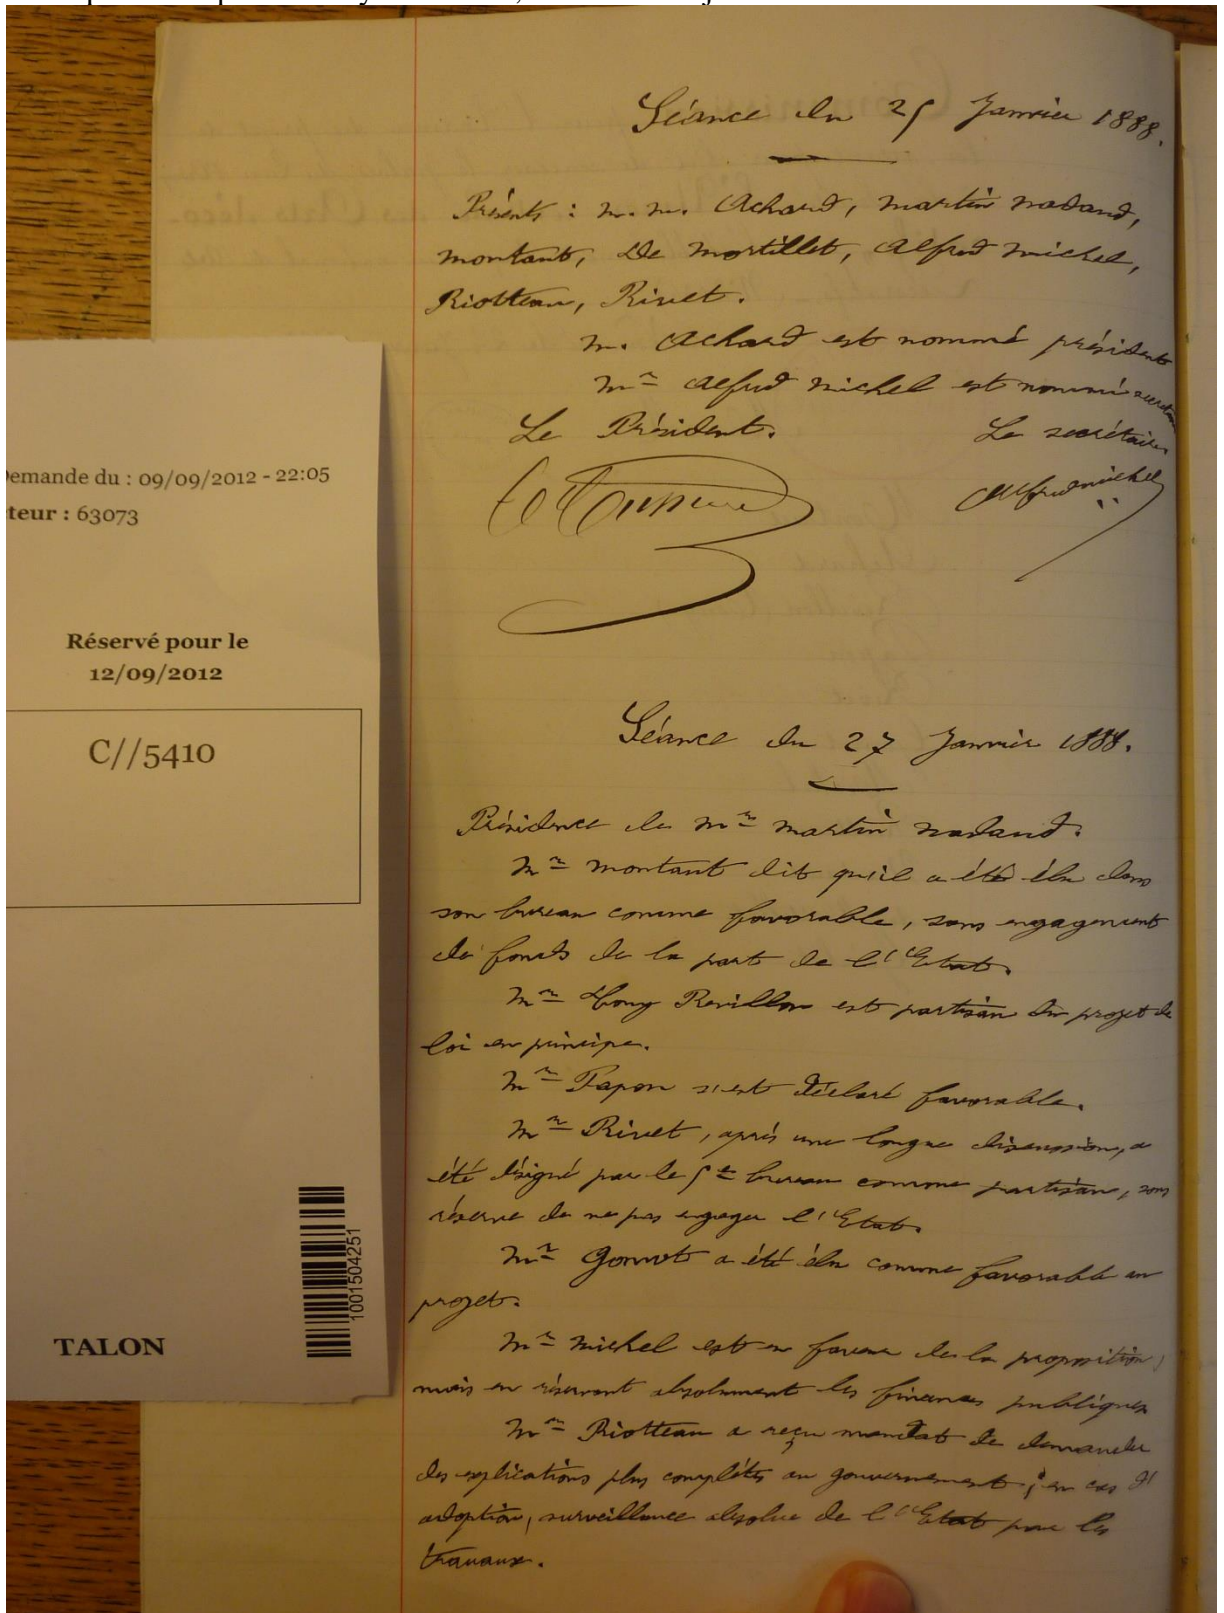 Séance du 25 Janvier 1888.
Présents : m. m. Achard, martin nadaud,
montaut, De mortillet, Alfred michel,
Riotteau, Rivet.
m. Achard est nommé président
mr Alfred michel est nommé secrétaire
Le Président. Le secrétaire
Alfred michel
Demande du : 09/09/2012 - 22:05
teur : 63073
Réservé pour le
12/09/2012
C//5410
1001504251
TALON
Séance du 27 Janvier 1888.
Présidence de mr martin nadaud.
mr montaut dit qu'il a été élu dans
son bureau comme favorable, sans engagement
de fonds de la part de l'Etat.
mr Tony Révillon est partisan du projet de
loi en principe.
mr Papon s'est déclaré favorable.
mr Rivet, après une longue discussion, a
été désigné par le 5e bureau comme partisan, sous
réserve de ne pas engager l'Etat.
mr Gomot a été élu comme favorable au
projet.
mr michel est en faveur de la proposition,
mais en réservant absolument les finances publiques
mr Riotteau a reçu mandat de demander
des explications plus complètes au gouvernement ; en cas d'
adoption, surveillance absolue de l'Etat pour les
travaux.